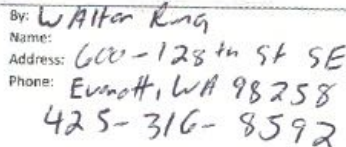 By: Walton Rung
Name:
Address: 600-128th St SE
Phone: Everett, WA 98258
425-316-8592